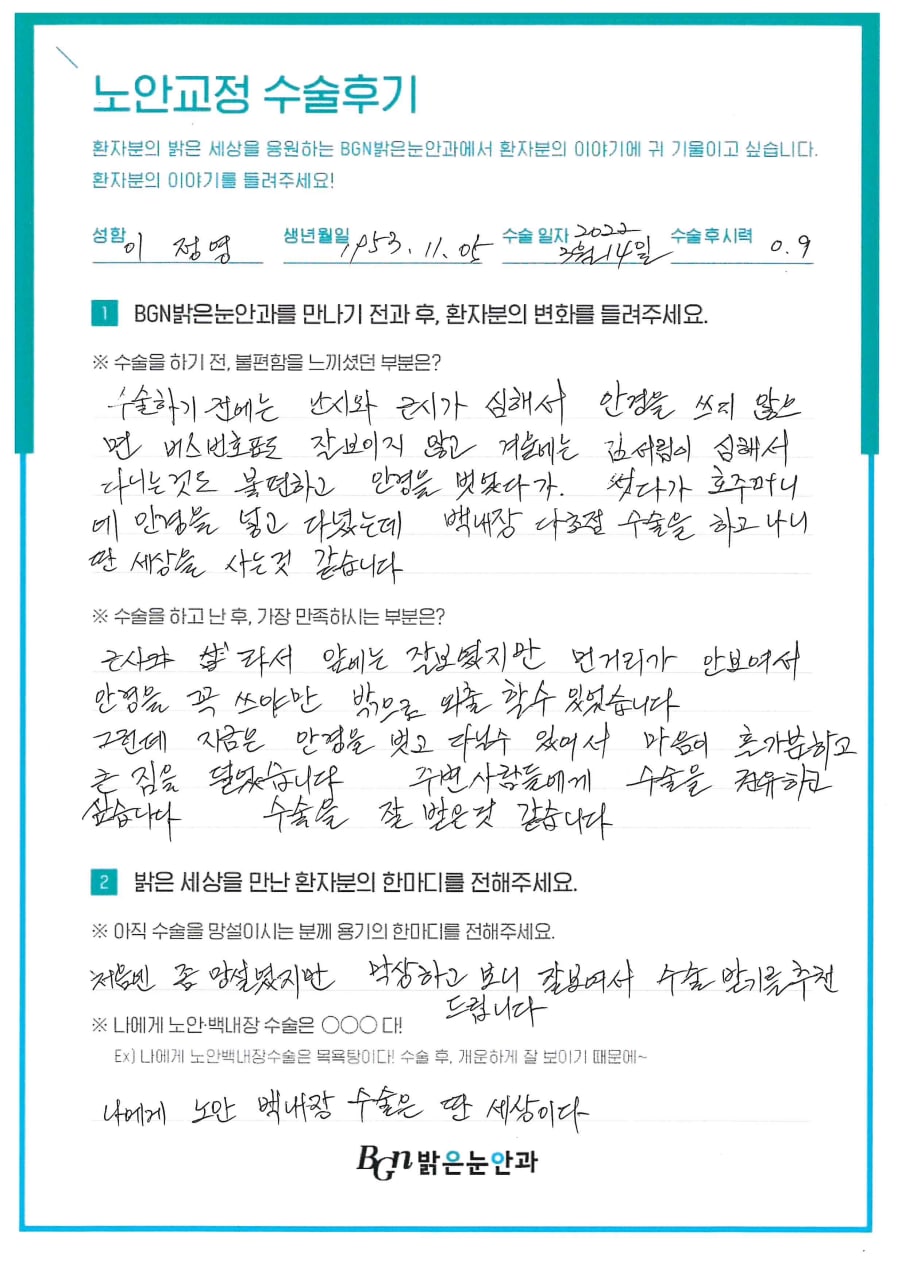 노안교정 수술후기
환자분의 밝은 세상을 응원하는 BGN밝은눈안과에서 환자분의 이야기에 귀 기울이고 싶습니다.
환자분의 이야기를 들려주세요!
성함 이 정영 생년월일 1953. 11. 05 수술 일자 2022 2월 14일 수술 후 시력 0.9
1 BGN밝은눈안과를 만나기 전과 후, 환자분의 변화를 들려주세요.
※ 수술을 하기 전, 불편함을 느끼셨던 부분은?
수술하기 전에는 난시와 근시가 심해서 안경을 쓰지 않으
면 버스번호판도 잘보이지 않고 겨울에는 김서림이 심해서
다니는것도 불편하고 안경을 벗었다가. 썼다가 호주머니
에 안경을 넣고 다녔는데 백내장 다초점 수술을 하고나니
딴 세상을 사는것 같습니다
※ 수술을 하고 난 후, 가장 만족하시는 부분은?
앞에는 잘보였지만 먼거리가 안보여서
안경을 꼭 쓰야만 밖으로 외출 할수 있었습니다
그런데 지금은 안경을 벗고 다닐수 있어서 마음이 홀가분하고
큰 짐을 덜었습니다 주변사람들에게 수술을 권유하고
싶습니다 수술을 잘 받은것 같습니다
2 밝은 세상을 만난 환자분의 한마디를 전해주세요.
※ 아직 수술을 망설이시는 분께 용기의 한마디를 전해주세요.
처음엔 좀 망설였지만 막상하고 보니 잘보여서 수술 받기를 추천
드립니다
※ 나에게 노안·백내장 수술은 ○○○ 다!
Ex) 나에게 노안백내장수술은 목욕탕이다! 수술 후, 개운하게 잘 보이기 때문에~
나에게 노안 백내장 수술은 딴 세상이다
BGN밝은눈안과